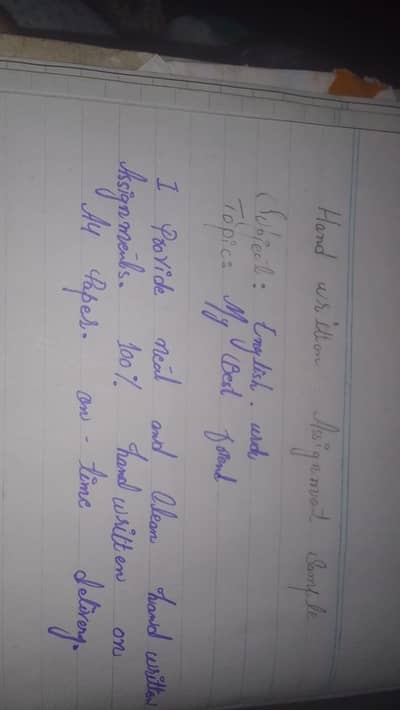 Hand written Assignment Sample
Subject: English.
Topic: My Best friend
I Provide neat and Clean hand written
Assignments. 100% hand written on
A4 Paper. on-time delivery.